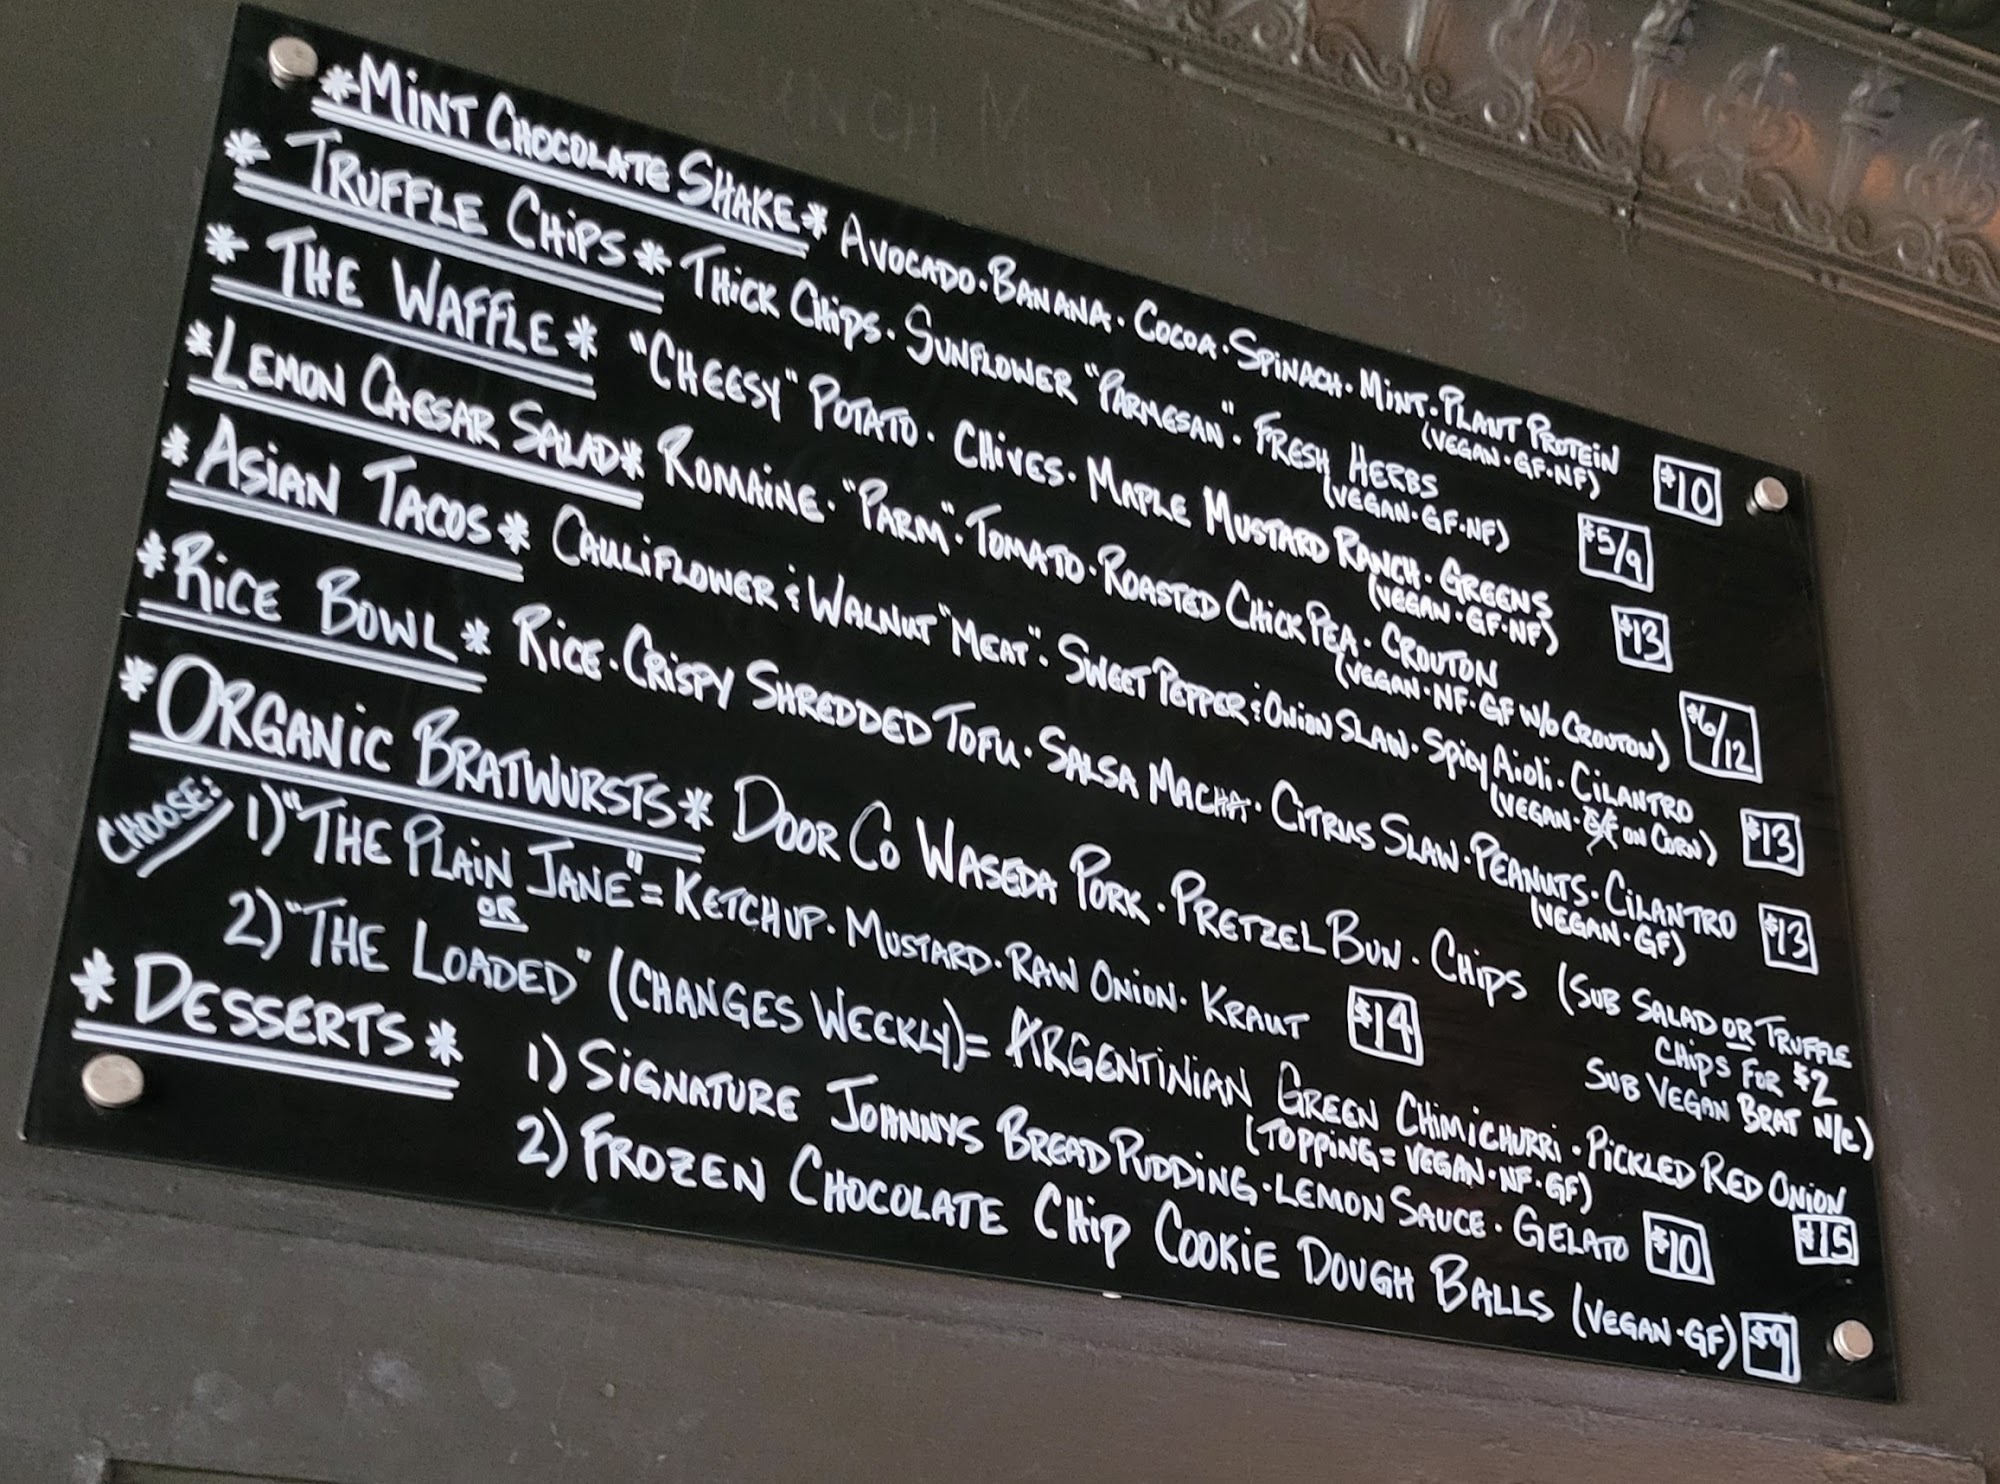 *MINT CHOCOLATE SHAKE* AVOCADO · BANANA · COCOA · SPINACH · MINT · PLANT PROTEIN $10
(VEGAN · GF · NF)
* TRUFFLE CHIPS * THICK CHIPS · SUNFLOWER "PARMESAN" · FRESH HERBS $5/9
(VEGAN · GF · NF)
* THE WAFFLE * "CHEESY" POTATO · CHIVES · MAPLE MUSTARD RANCH · GREENS $13
(VEGAN · GF · NF)
*LEMON CAESAR SALAD* ROMAINE · "PARM" · TOMATO · ROASTED CHICKPEA · CROUTON $6/12
(VEGAN · NF · GF W/O CROUTON)
* ASIAN TACOS * CAULIFLOWER & WALNUT "MEAT" · SWEET PEPPER & ONION SLAW · SPICY AIOLI · CILANTRO $13
(VEGAN · GF ON CORN)
*RICE BOWL * RICE · CRISPY SHREDDED TOFU · SALSA MACHA · CITRUS SLAW · PEANUTS · CILANTRO $13
(VEGAN · GF)
*ORGANIC BRATWURSTS* DOOR CO WASEDA PORK · PRETZEL BUN · CHIPS (SUB SALAD OR TRUFFLE
CHIPS FOR $2
SUB VEGAN BRAT N/C)
CHOOSE: 1) "THE PLAIN JANE" = KETCHUP · MUSTARD · RAW ONION · KRAUT $14
OR
2) "THE LOADED" (CHANGES WEEKLY) = ARGENTINIAN GREEN CHIMICHURRI · PICKLED RED ONION $15
(TOPPING = VEGAN · NF · GF)
* DESSERTS * 1) SIGNATURE JOHNNYS BREAD PUDDING · LEMON SAUCE · GELATO $10
2) FROZEN CHOCOLATE CHIP COOKIE DOUGH BALLS (VEGAN · GF) $9